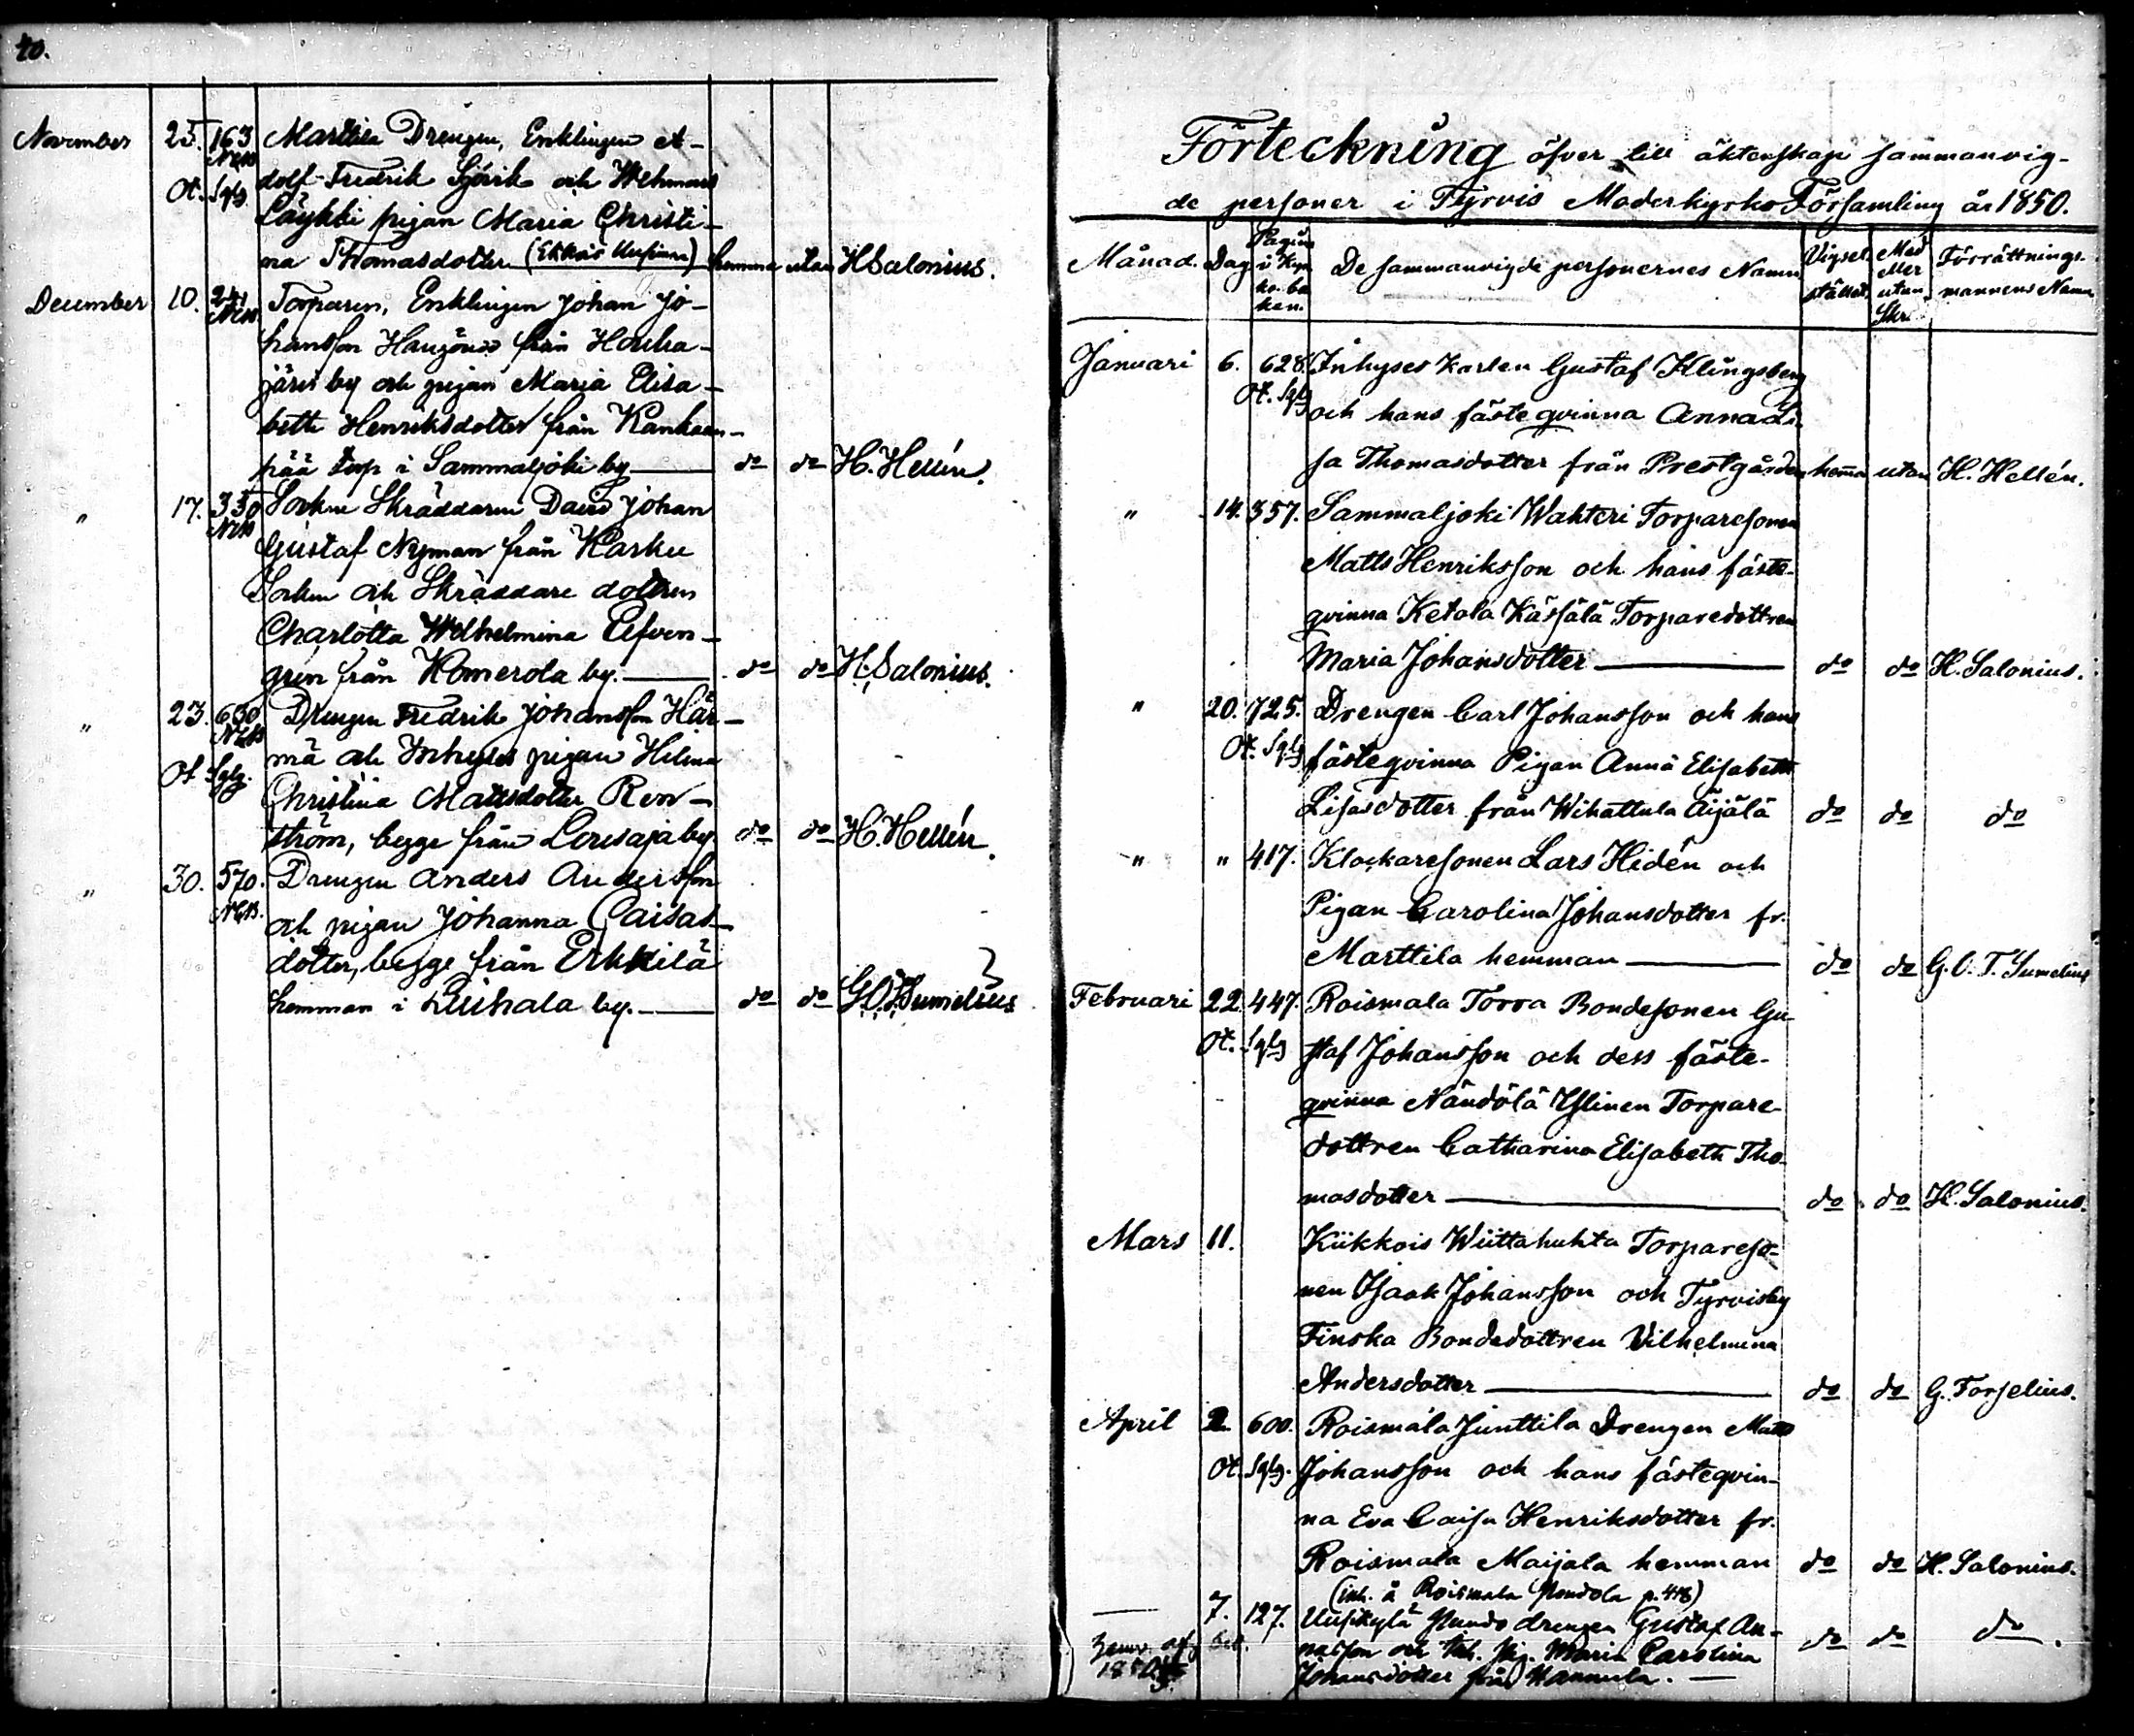 40.
November 25. 163 Marttila Drengen, Enklingen A-
NB dolf Fredrik Sjövik och Wehmais
Ot. Sqlg. Läykki pigan Maria Christi-
na Thomasdotter (Ekkois Uusimaa) hemma utan H Salonius.
December 10. 241 Torparen, Enklingen Johan Jo-
NB hansson Haugönen från Houha-
järvi by och pigan Maria Elisa-
beth Henriksdotter från Kankaan-
pää torp i Sammaljoki by do do H. Hellén.
" 17. 350 Socken Skräddaren David Johan
NB Gustaf Nyman från Karku
Socken och Skräddare dottren
Charlotta Wilhelmina Lefven-
gren från Komerola by. do do H. Salonius.
" 23. 650 Drengen Fredrik Johansson Här-
NB mä och Inhyses pigan Helena
Ot Sqlg. Christina Mattsdotter Ren-
ström, begge från Lousaja by. do do H. Hellén.
" 30. 570. Drengen Anders Andersson
NB. och pigan Johanna Caisas-
dotter, begge från Erkkilä
hemman i Liuhala by. do do G.O.T. Sumelius
Förteckning öfver till äktenskap sammanvig-
de personer i Tyrvis Moderkyrko Församling år 1850.
Månad. Dag Pagina i Kyrkoboken. De sammanvigde personernes Namn Vigsel stället. Med eller utan Skr. Förrättnings-mannens Namn
Januari 6. 628. Inhyses karlen Gustaf Klingsberg
Ot. Sqlg och hans fästeqvinna Anna Li-
sa Thomasdotter från Prestgården hemma utan H. Hellén.
" 14. 357. Sammaljoki Wahteri Torparesonen
Matts Henriksson och hans fäste-
qvinna Ketola Kässälä Torparedottren
Maria Johansdotter do do H. Salonius.
" 20. 725. Drengen Carl Johansson och hans
Ot. Sqlg fästeqvinna Pigan Anna Elisabeth
Lisasdotter från Wihattula Äijälä do do do
" " 417. Klockaresonen Lars Hidén och
Pigan Carolina Johansdotter fr.
Marttila hemman do do G. O. T. Sumelius
Februari 22. 447. Roismala Torra Bondesonen Gu-
Ot. Sqlg staf Johansson och dess fäste-
qvinna Nändölä Yllinen Torpare-
dottren Catharina Elisabeth Tho-
masdotter do do H. Salonius.
Mars 11. Kiikkois Wiittahuhta Torpareso-
nen Isaak Johansson och Tyrvisby
Finska Bondedottren Vilhelmina
Andersdotter do do G. Forselius.
April 2 600. Roismala Junttila Drengen Matts
Ot. Sqlg. Johansson och hans fästeqvin-
na Eva Caisa Henriksdotter fr.
Roismala Maijala hemman do do H. Salonius.
(inh. å Roismala Nondola p. 418)
7. 127. Uusikylä Nundo drengen Gustaf An-
nasson och Inh. Pig. Maria Carolina do do do.
Johansdotter från Kannula.